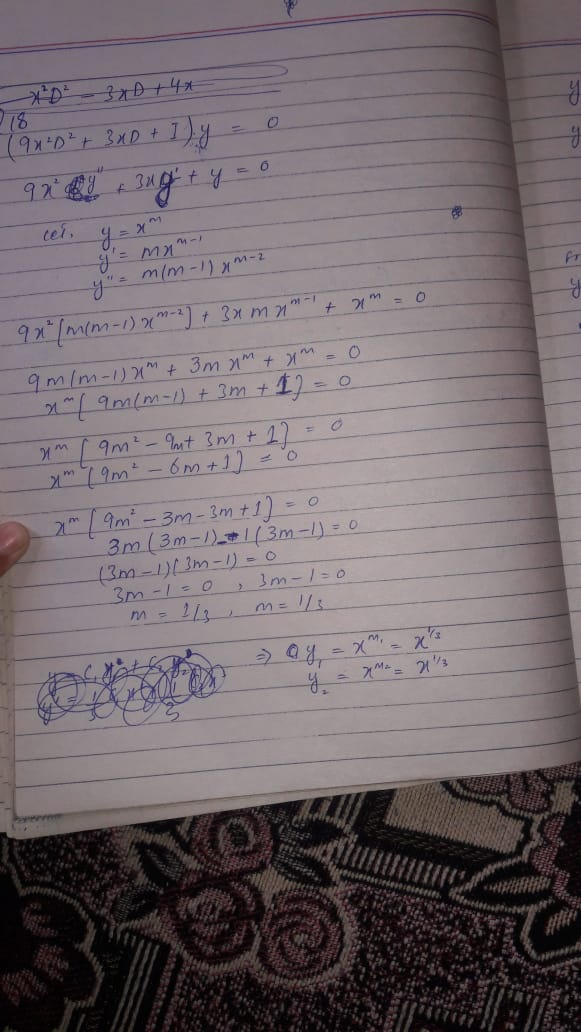 x²D² - 3xD + 4x
18
(9x²D² + 3xD + I) y = 0
9x² y'' + 3xy' + y = 0
let, y = x^m
y' = mx^(m-1)
y'' = m(m-1) x^(m-2)
9x² [m(m-1) x^(m-2)] + 3x m x^(m-1) + x^m = 0
9m(m-1) x^m + 3m x^m + x^m = 0
x^m [ 9m(m-1) + 3m + 1] = 0
x^m [ 9m² - 9m + 3m + 1] = 0
x^m [9m² - 6m + 1] = 0
x^m [ 9m² - 3m - 3m + 1] = 0
3m (3m-1) - 1 (3m-1) = 0
(3m-1)(3m-1) = 0
3m-1 = 0 , 3m-1 = 0
m = 1/3 , m = 1/3
⇒ y₁ = x^(m₁) = x^(1/3)
y₂ = x^(m₂) = x^(1/3)
y
y
y